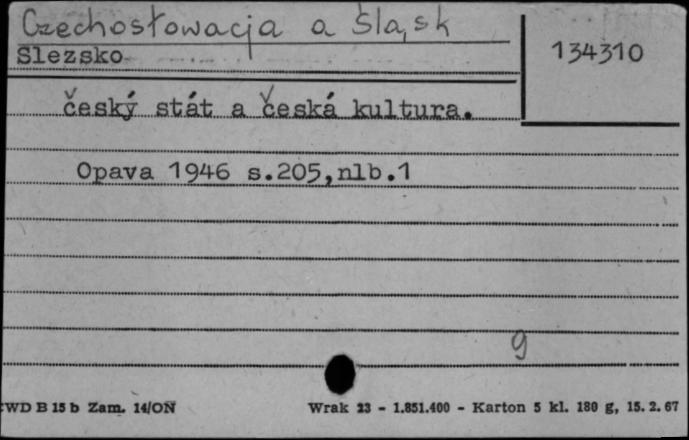 Czechosłowacja a Śląsk
134310
Slezsko
český stát a česká kultura.
Opava 1946 s.205,nlb.1
9
CWD B 15 b Zam. 14/ON
Wrak 23 - 1.851.400 - Karton 5 kl. 180 g, 15. 2. 67